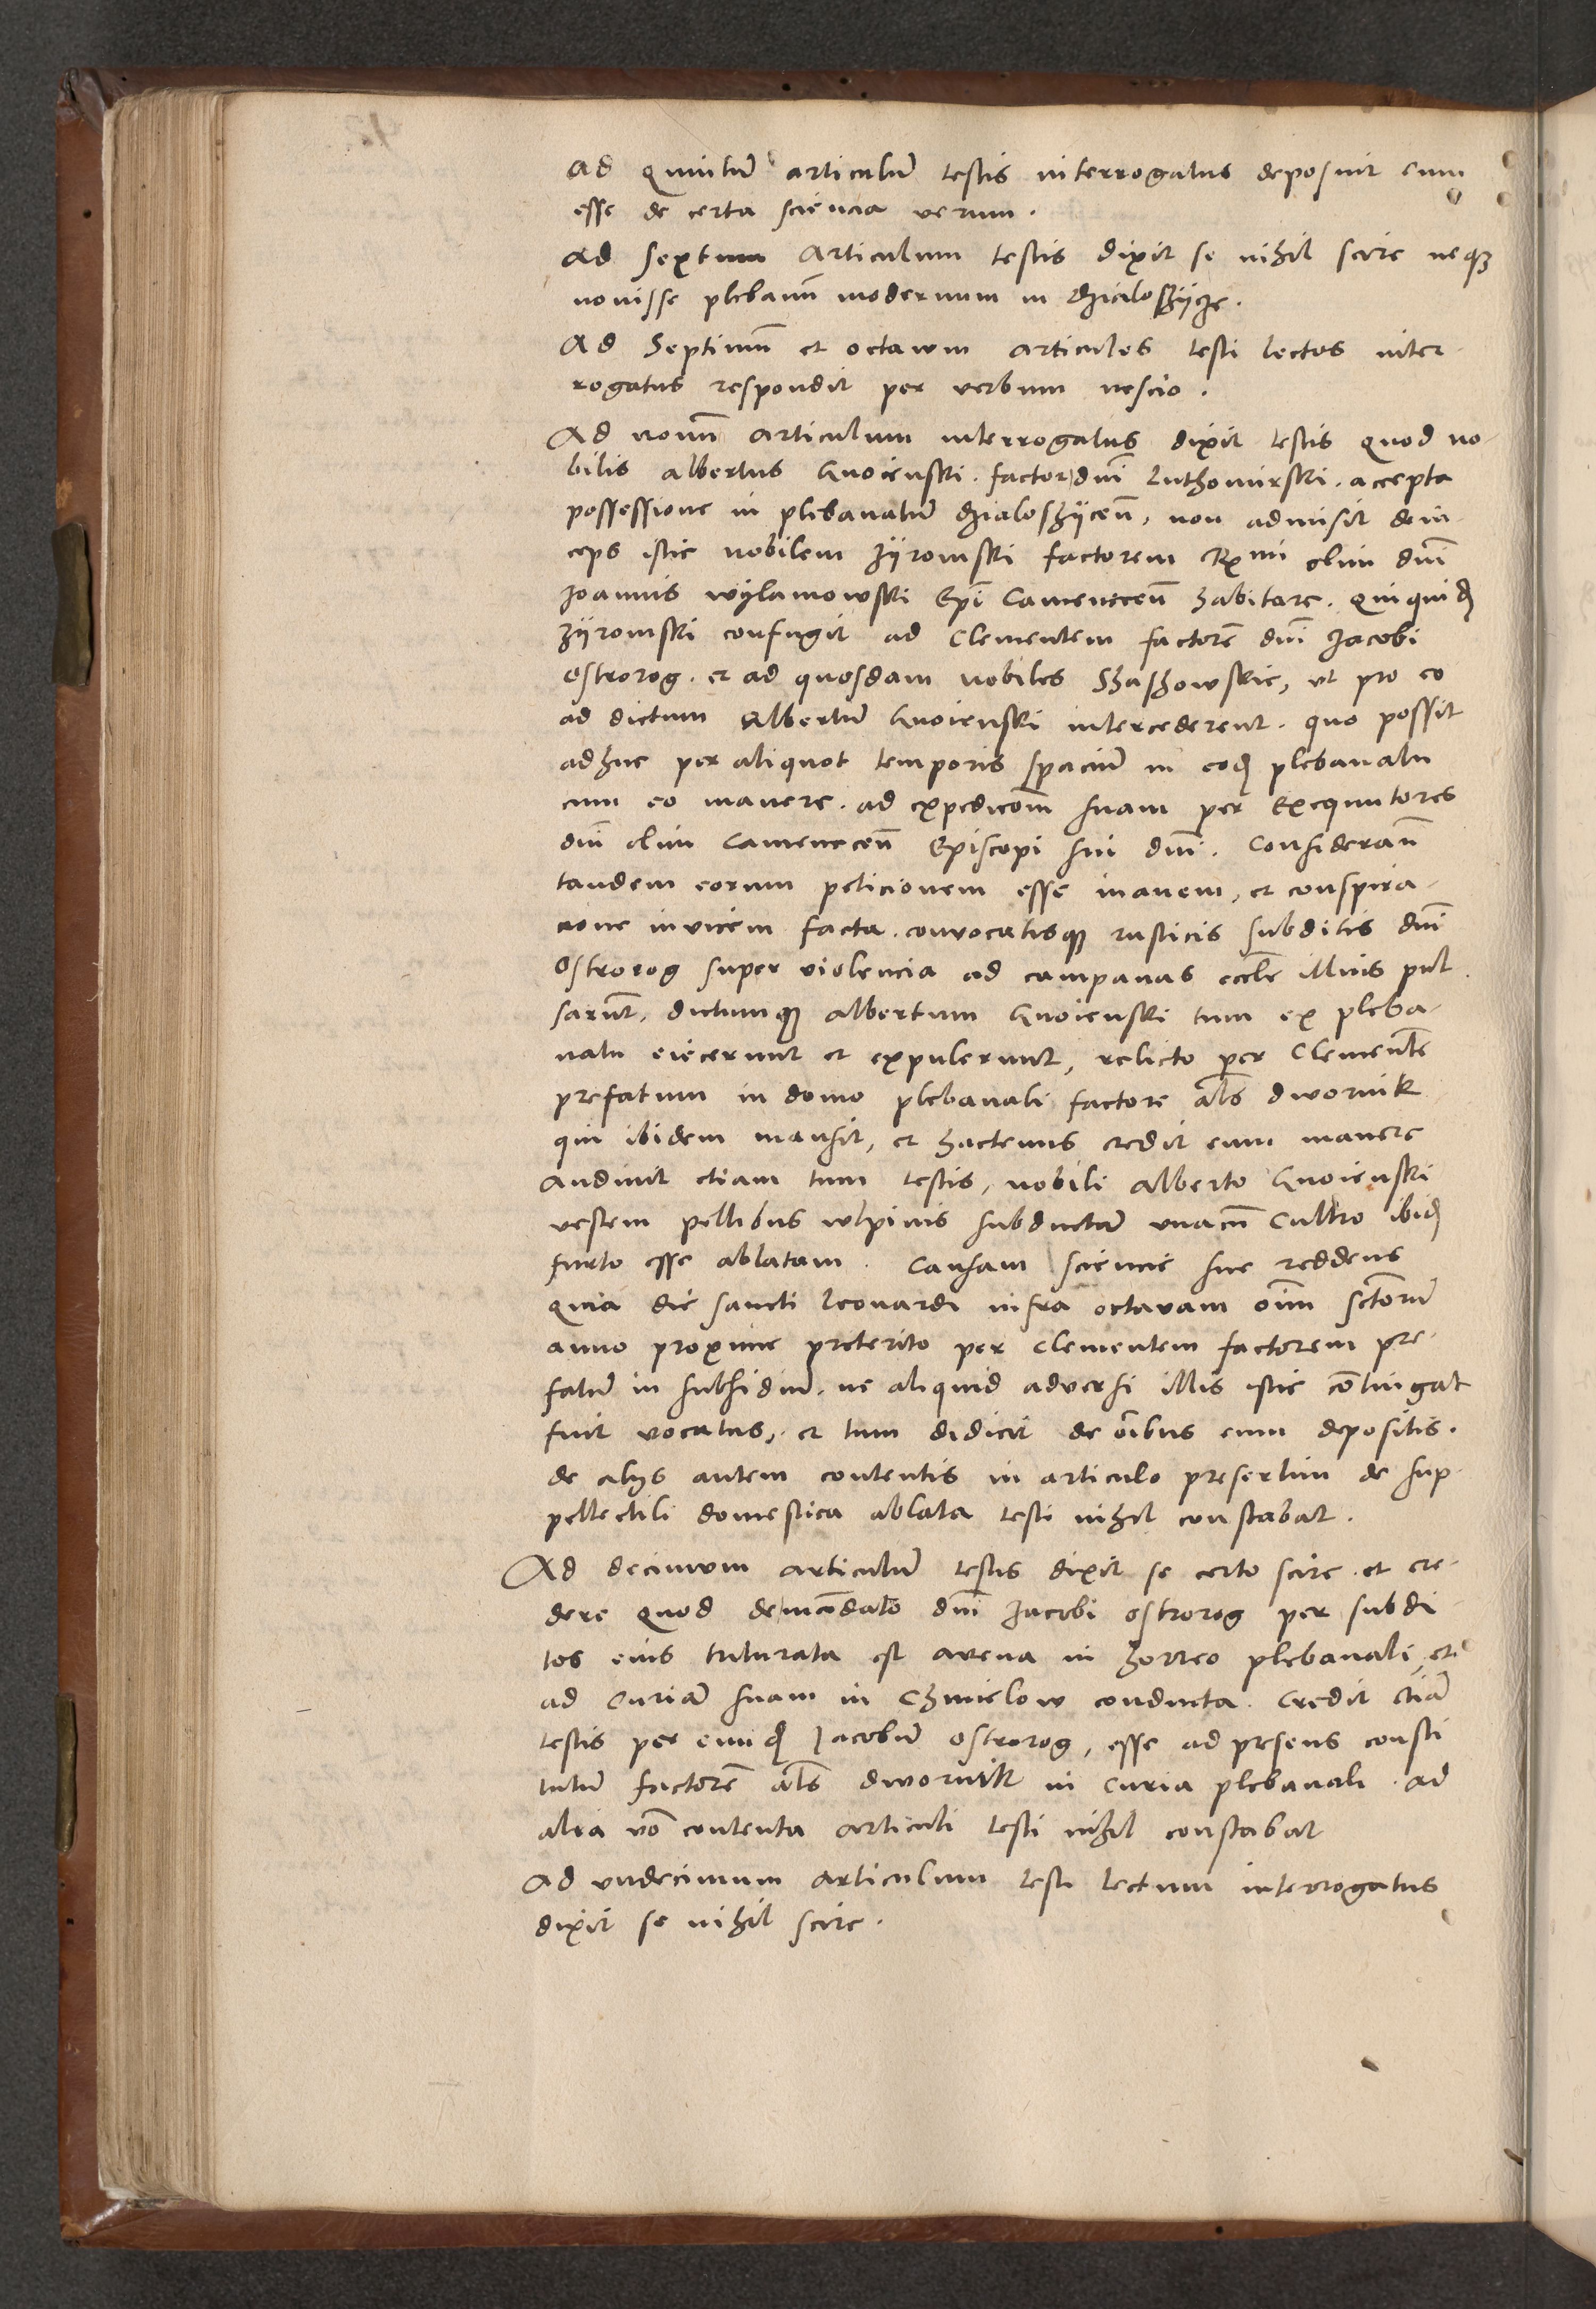 Ad Quintū articulū testis interrogatus deposuit eum
esse de certa sciencia verum.
Ad sextum Articulum testis dixit se nihil scire neqȝ
novisse plebanū modernum in Dzialoschÿcze.
Ad Septimū et octavum articulos testi lectos inter-
rogatus respondit per verbum nescio.
Ad nonū Articulum interrogatus dixit testis quod no-
bilis Albertus Gnoienski. factor dnī Luthomirski. accepta
possessione in plebanatū Dzialoszÿceñ, non admisit dein-
ceps istic nobilem Zÿromski factorem Rx mi olim dnī
Joannis Wÿlamowski Epī Cameneceñ habitare. Quiquid
Zÿromski confugit ad Clementem factorē dnī Jacobi
Ostrorog. et ad quosdam nobiles Shashowskie, ut pro eo
ad dictum Albertū Gnoienski intercederent. quo possit
adhuc per aliquot temporis spaciū in eod plebanatu
cum eo manere. ad expedicōm suam per Exequutores
dnī olim Cameneceñ Episcopi sui dnī. Considerañ
tandem eorum peticionem esse inanem, et conspira-
cione invicem facta. convocatisqȝ rusticis subditis dnī
Ostrorog super violencia ad campanas eccle illius pul-
sarūt, dictumqȝ Albertum Gnoienski tum ex pleba-
natu eiecerunt et expulerunt, relicto per Clementē
prefatum in domo plebanali factore als dwornik
qui ibidem mansit, et hactenus credit eum manere
Audivit etiam tum testis, nobili Alberto Gnoienski
vestem pellibus wlpinis subductā unacū Cultro ibid
furto esse ablatam. Causam sciencie sue reddens
Quia die sancti Leonardi infra octavam oīm sctorū
anno proxime preterito per Clementem factorem pre-
fatū in subsidiū. ne aliquid adversi illis istic cōtingat
fuit vocatus, et tum didicit de oībus eum depositis.
de alijs autem contentis in articulo presertim de sup-
pellectili domestica ablata testi nihil constabat.
Ad decimum articulū testis dixit se certo scire et cre-
dere quod de mādato dnī Jacobi Ostrorog per subdi-
tos eius triturata est avena in horreo plebanali, et
ad Curiā suam in Chmielow conducta. Credit etiā
testis per eund Jacobū Ostrorog, esse ad presens consti
tutū factorē als dwornik in Curia plebanali. Ad
alia vō contenta articuli testi nihil constabat
Ad undecimum articulum testi lectum interrogatus
dixit se nihil scire.